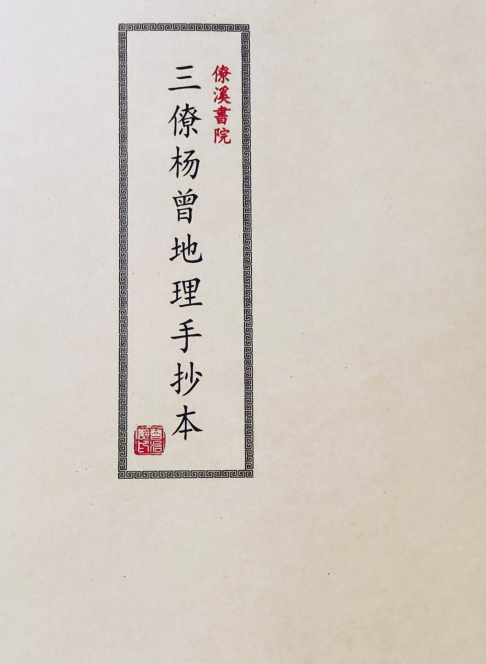 僚溪書院
三僚杨曾地理手抄本